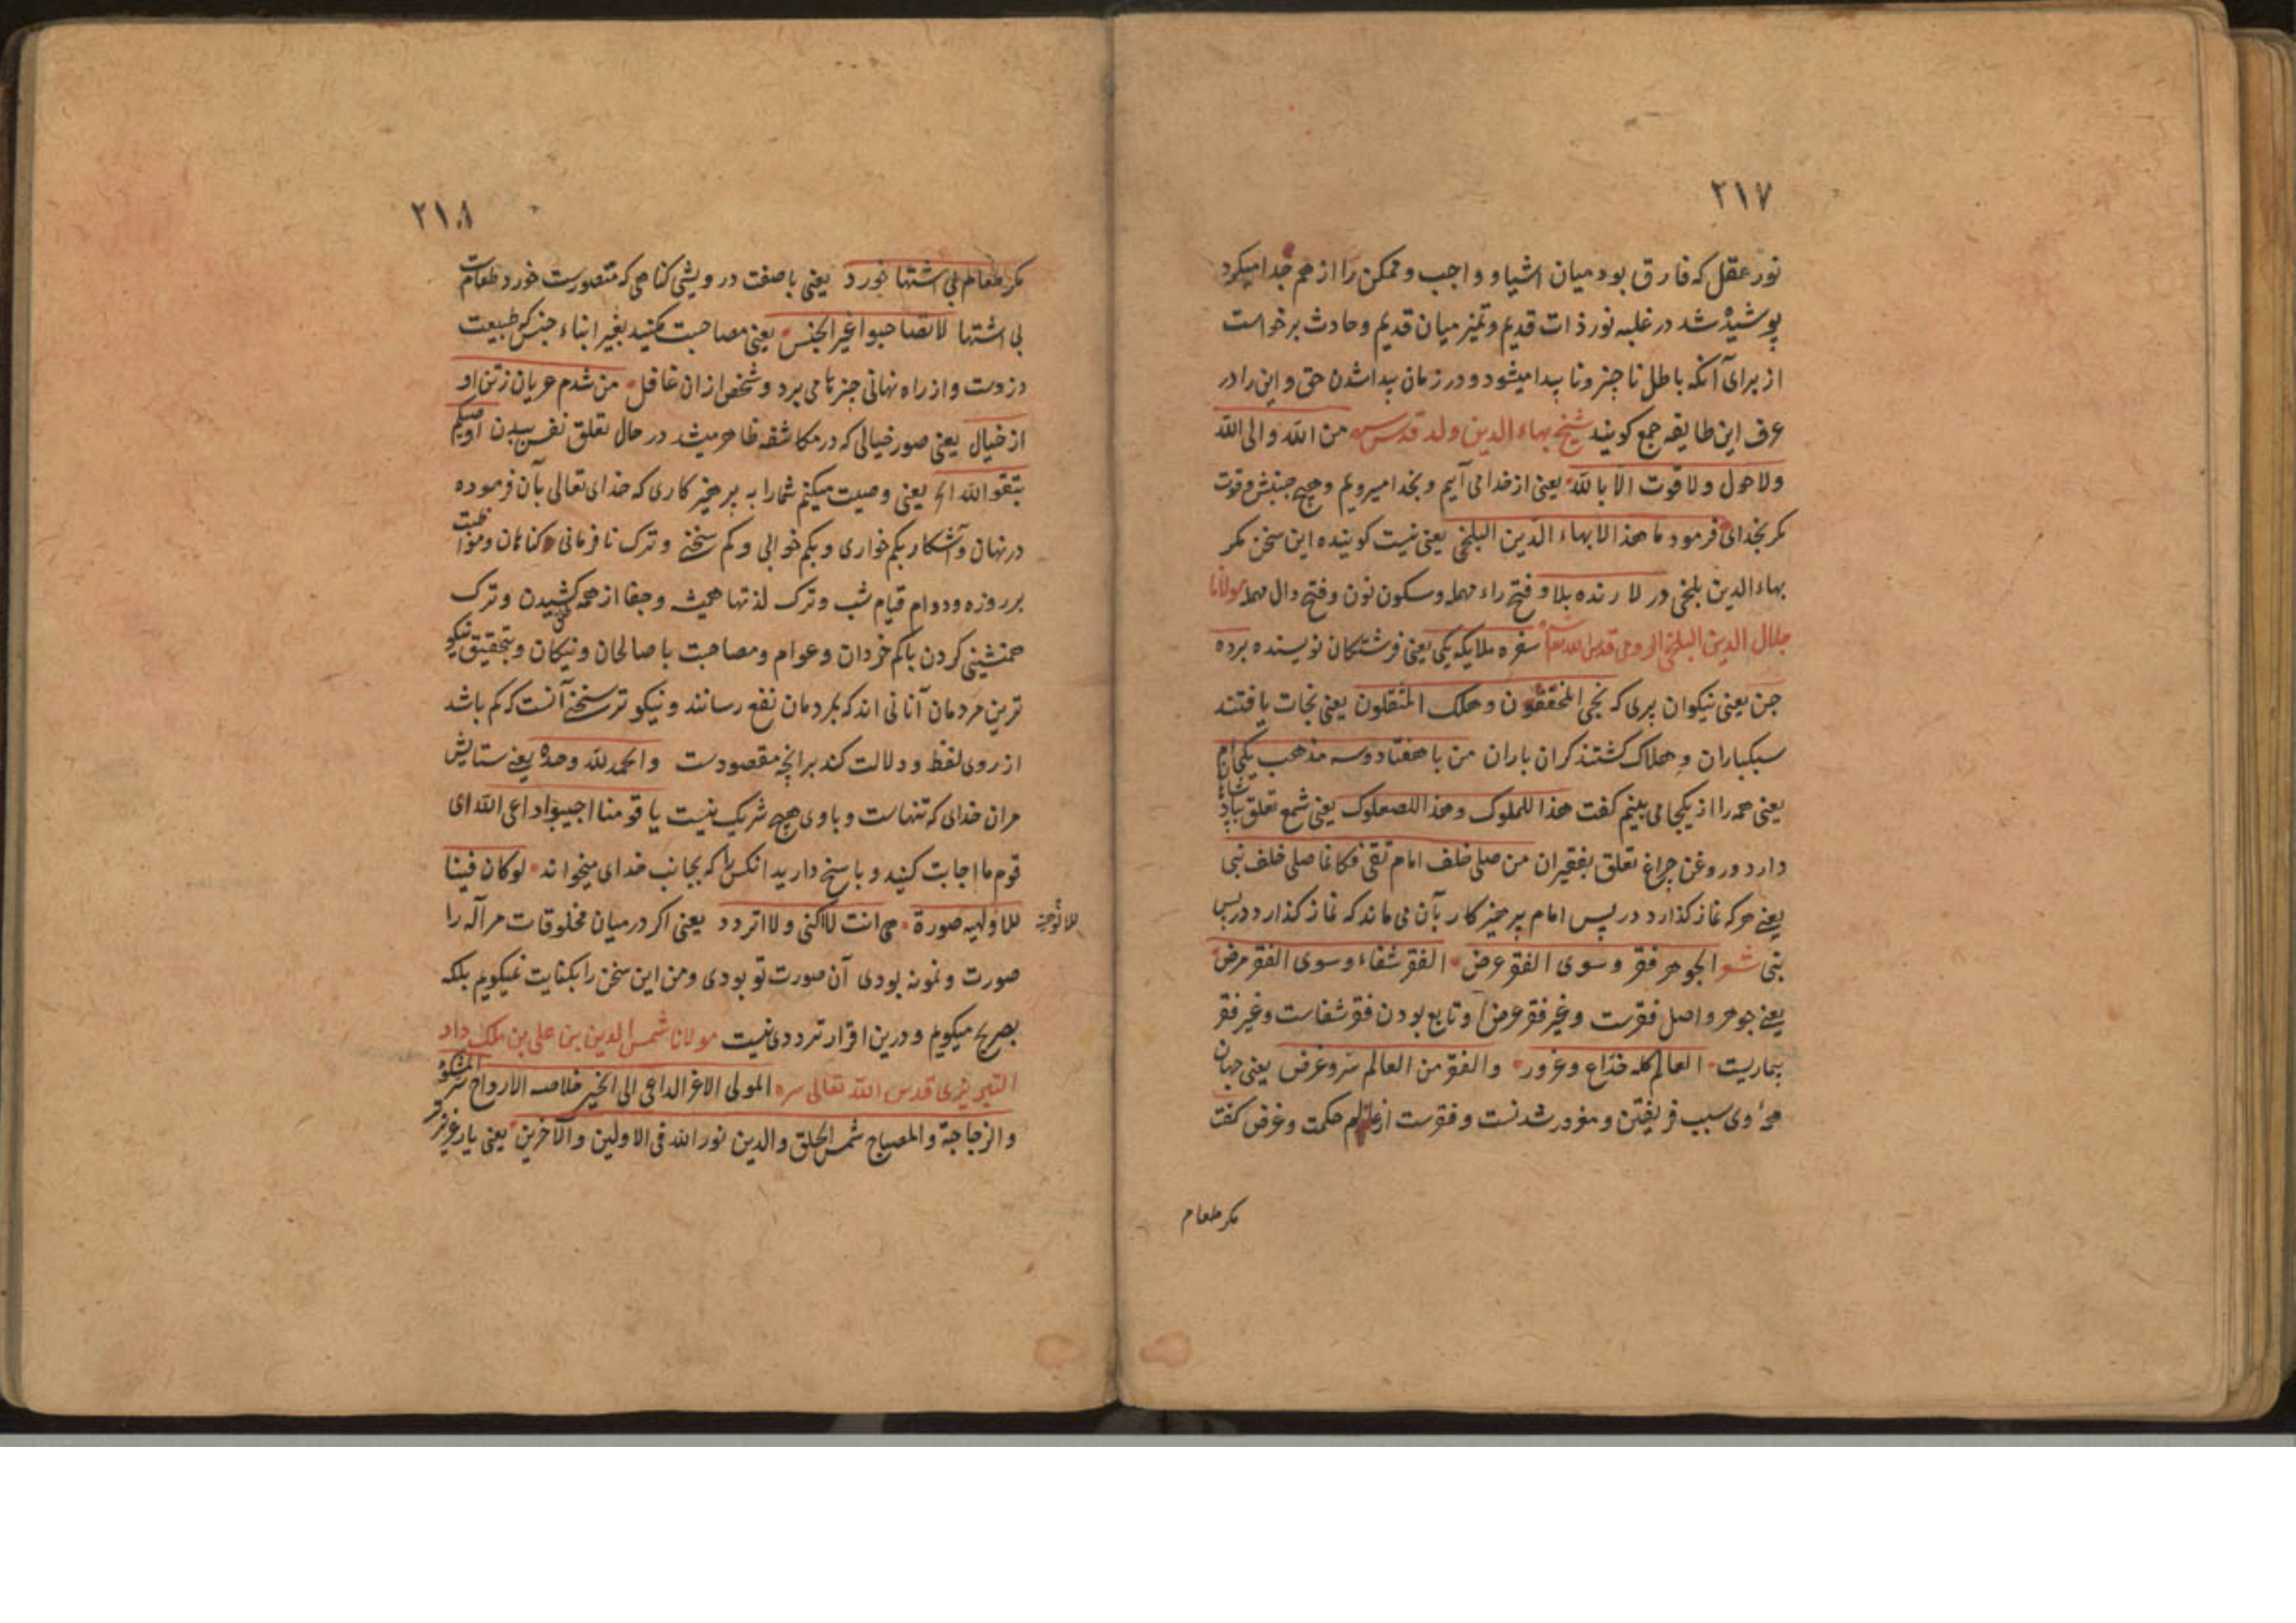 ۲۱۷
نور عقل که فارق بود میان اشیا و واجب و ممکن را از هم جدا میکرد
پوشیده شد در غلبه نور ذات قدیم و تمیز میان قدیم و حادث برخواست
از برای آنکه باطل ناچیز و نا پیدا میشود در زمان پیدا شدن حق و این را در
عرف این طایفه جمع کویند شیخ بهاء الدین ولد قدس سره من الله والی الله
ولا حول ولا قوت الا بالله یعنی از خدا می آییم و بخدا میرویم و هیچ جنبش و قوت
مکر بخدای فرمود ما هذا الا بهاء الدین البلخی یعنی نیست کوینده این سخن مکر
بهاء الدین بلخی در لا رنده بلا و فتح راء مهمله وسکون نون وفتح دال مهمله مولانا
جلال الدین البلخی الرومی قدس الله سفره ملایکه یکی یعنی فرشتکان نویسنده برده
جن یعنی نیکوان پری که نجی المخففون وهلک المثقلون یعنی نجات یافتند
سبکباران و هلاک کشتند کران باران من با هفتاد و سه مذهب یکی ام
یعنی همه را از یکجا می بینم کفت هذا للملوک وهذا للصعلوک یعنی شمع تعلق بپادشاهان
دارد و روغن چراغ تعلق بفقیران من صلی خلف امام تقی فکانما صلی خلف نبی
یعنی هر که نماز کذارد در پس امام پرهیز کار بآن می ماند که نماز کذارد در پس
نبی شعر الجوهر فقر وسوی الفقر عرض الفقر شفاء وسوی الفقر مرض
یعنی جوهر و اصل فقرست و غیر فقر عرض و تابع بودن فقر شفاست و غیر فقر
بیماریست العالم کله خداع وغرور والفقر من العالم سر وغرض یعنی جهان
همه وی سبب فریفتن و مغرور شدنست و فقرست از عالم حکمت و غرض کفت
مکر طعام
۲۱۸
مکر طعام بی اشتها خورد یعنی با صفت درویشی کناهی که متصورست خورد طعامست
بی اشتها لا تصاحبوا غیر الجنس یعنی مصاحبت مکنید بغیر ابناء جنس که طبیعت
دزدست و از راه نهانی چیزها می برد و شخص ازان غافل من شدم عریان ز تن او
از خیال یعنی صور خیالی که در مکاشفه ظاهر میشد در حال تعلق نفس ببدن اوصیکم
بتقوالله الخ یعنی وصیت میکنم شما را به پرهیز کاری که خدای تعالی بآن فرموده
در نهان و آشکار بکم خواری و بکم خوابی و کم سخنی و ترک نافرمانی و کناهان و مواظبت
بر روزه و دوام قیام شب و ترک لذتها همیشه و جفا از همه کس کشیدن و ترک
همنشینی کردن با کم خردان و عوام و مصاحبت با صالحان و نیکان و بتحقیق نیکو
ترین مردمان آنانی اند که بمردمان نفع رسانند و نیکوتر سخنی آنست که کم باشد
از روی لفظ و دلالت کند بر انچه مقصودست والحمد لله وحده یعنی ستایش
مران خدای که تنهاست و با وی هیچ شریک نیست یا قومنا اجیبوا داعی الله ای
قوم ما اجابت کنید و پاسخ دارید انکس را که بجانب خدای میخواند لو کان فینا
للالوهیة
للاولهیه صورة هی انت لا اکنی ولا اتردد یعنی اکر در میان مخلوقات مر آله را
صورت و نمونه بودی آن صورت تو بودی و من این سخن را بکنایت نمیکویم بلکه
بصریح میکویم و درین اقرار ترددی نیست مولانا شمس الدین بن علی بن ملک داد
التبریزی قدس الله تعالی سره المولی الاعز الداعی الی الخیر خلاصه الارواح سر المشکوة
والزجاجة والمصباح شمس الحق والدین نور الله فی الاولین والآخرین یعنی یار عزیز